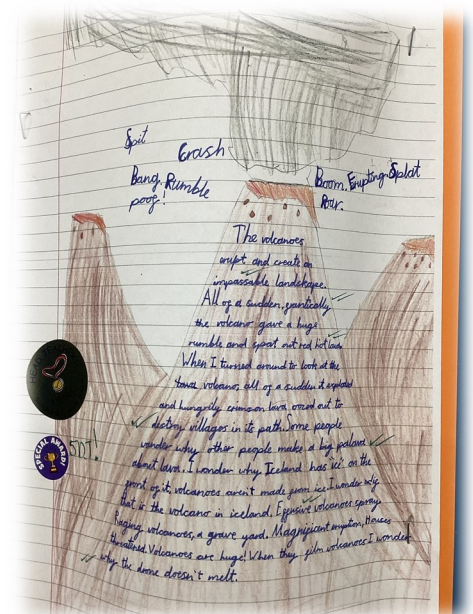 Spit
Crash
Bang. Rumble
poof!
Boom. Erupting. Splat
Roar.
The volcanoes
erupt and create an
impassable landscape.
All of a sudden, frantically
the volcano gave a huge
rumble and spat out red hot lava
When I turned around to look at the
tawa volcano, all of a sudden it exploded
and hungrily crimson lava oozed out to
destroy villages in its path. Some people
wonder why other people make a big palava
about lava. I wonder why Iceland has ice on the
front of it, volcanoes aren't made from ice. I wonder
that is the volcano in iceland. volcanoes spray
Raging volcanoes, a grave yard. Magnificent eruption, Houses
threatened. Volcanoes are huge! When they film volcanoes I wonder
why the drone doesn't melt.
SPECIAL AWARD!
5DT!